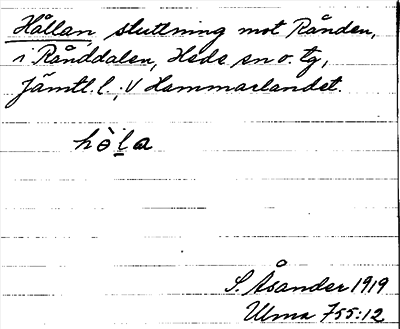 Hållan sluttning mot Rånden,
i Rånddalen, Hede sn o. tg,
Jämtl. l.; V Hammarlandet.
hòla
S. Åsander 1919
Ulma 755:12